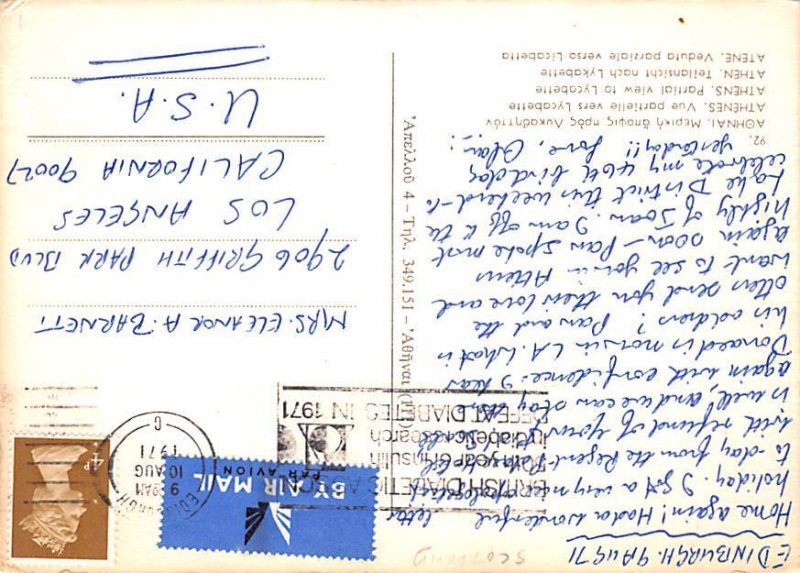 EDINBURGH. 9 AUG 71
Home again! Had a wonderful
holiday. I got a very nice letter
to-day from the Regent Palace Hotel
with refund of your
is well, and we can stay there
again with confidence. I hear
Donald is now in L.A. What is
his address? Pam and the
others send you their love and
want to see you in Athens
again soon — Pam spoke most
highly of Joan. I am off to the
Lake District this weekend - to
celebrate my 40th birthday
yesterday!! Love, Alan.
92.
ΑΘΗΝΑΙ. Μερική ἄποψις πρός Λυκαβηττόν
ATHÈNES. Vue partielle vers Lycabette
ATHENS. Partial view to Lycabette
ATHEN. Teilansicht nach Lykabette
ATENE. Veduta parziale verso Licabetta
Ἀπελλοῦ 4 – Τηλ. 349.151 – Ἀθῆναι
SCOTLAND
BY AIR MAIL
PAR AVION
BRITISH DIABETIC ASSOC
50th year of insulin
in diabetic research
DEFEAT DIABETES IN 1971
EDINBURGH
9 AM
10 AUG
1971
C
4P
MRS. ELEANOR A. BARNETT
2906 GRIFFITH PARK BLVD
LOS ANGELES
CALIFORNIA 90027
U.S.A.